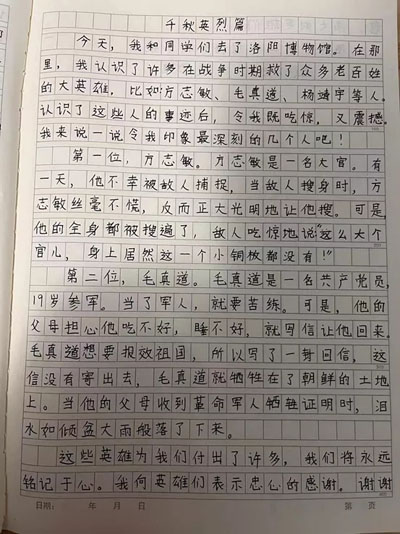 千秋英烈篇
今天，我和同学们去了洛阳博物馆。在那
里，我认识了许多在战争时期救了众多老百姓
的大英雄，比如方志敏、毛真道、杨靖宇等人。
认识了这些人的事迹后，令我既吃惊，又震撼。
我来说一说令我印象最深刻的几个人吧！
第一位，方志敏。方志敏是一名大官。有
一天，他不幸被敌人捕捉，当敌人搜身时，方
志敏丝毫不慌，反而正大光明地让他搜。可是，
他的全身都被搜遍了，敌人吃惊地说“这么大个
官儿，身上居然这一个小铜板都没有！”
第二位，毛真道。毛真道是一名共产党员，
19岁参军。当了军人，就要苦练。可是，他的
父母担心他吃不好，睡不好，就写信让他回来。
毛真道想要报效祖国，所以写了一封回信，这
信没有寄出去，毛真道就牺牲在了朝鲜的土地
上。当他的父母收到革命军人牺牲证明时，泪
水如倾盆大雨般落了下来。
这些英雄为我们付出了许多，我们将永远
铭记于心。我向英雄们表示忠心的感谢。谢谢
日期： 年 月 日 第 页